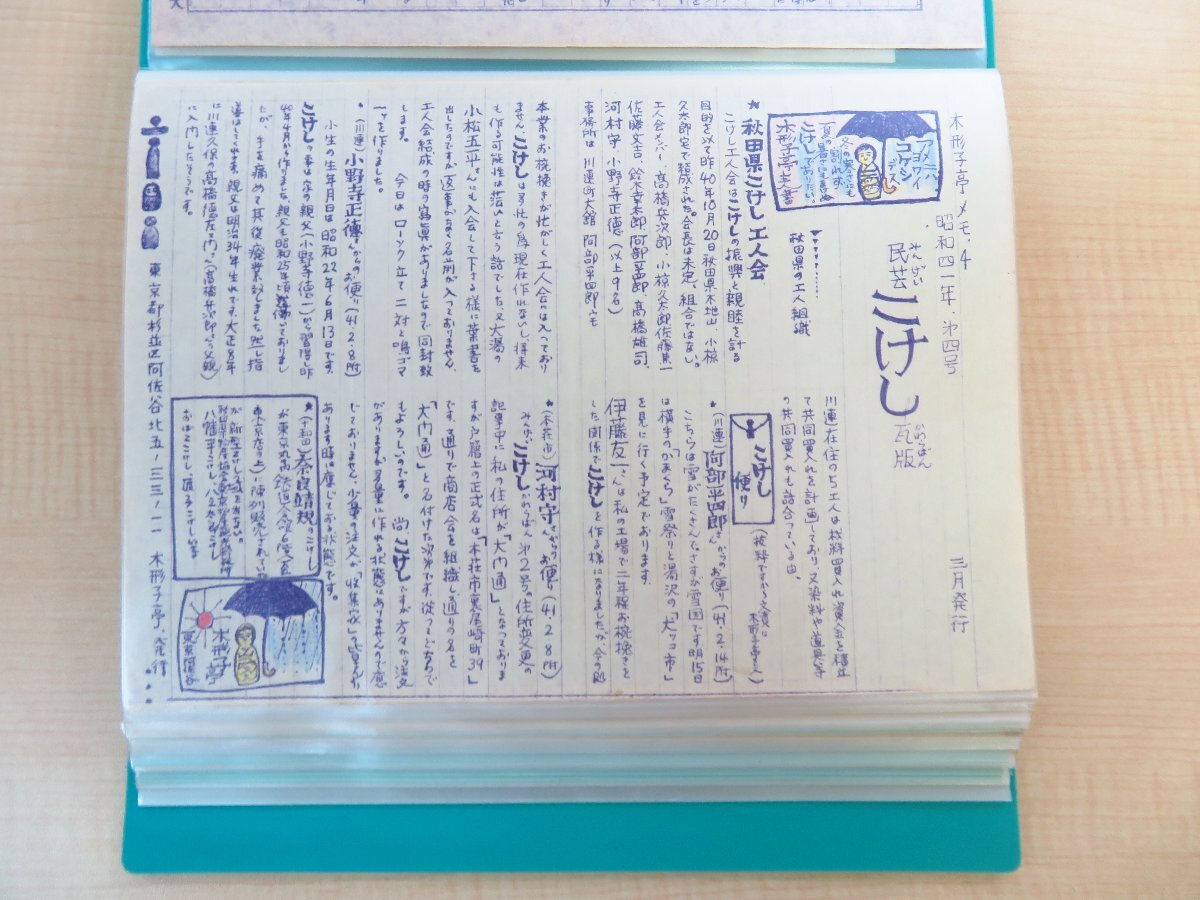 木形子亭メモ.4
昭和四一年・第四号
三月発行
みんげい
民芸
こけし
かわらばん
瓦版
アメニハ
ヨワイ
コケシ
デス
こけしでありたい
木形子亭主人書
秋田県の工人組織
★秋田県こけし工人会
こけし工人会はこけしの振興と親睦を計る
目的を以て昨40年10月20日秋田県木地山、小椋
久太郎宅で結成された。会長は未定、組合ではない。
工人会メンバー、高橋兵次郎、小椋久太郎、佐藤
佐藤文吉、鈴木幸太郎、阿部平四郎、高橋雄司、
河村守、小野寺正徳（以上9名）
事務所は川連町大舘 阿部平四郎宅
本業のお椀挽きが忙がしく工人会には入っており
ません、こけしは多忙の為現在作れないし、将来
も作る可能性は薄いと言う話でした又大湯の
小松五平さんにも入会して下さる様に葉書を
出したのですが返事がなく名前が入っておりません
工人会結成の時の寫眞がありましたので同封致
します。 今日はローソク立て二対と鳴ゴマ
一ツを作りました。
★（川連）小野寺正徳さんからのお便り（41.2.8附）
小生の生年月日は昭和22年6月13日です、
こけしの事は父の親父（小野寺徳一）から習得し昨
40年4月から作りました、親父も昭和25年頃
たが、手を痛めて其後廃業致しました然し指
導はしてくれます。親父は明治34年生れです、大正8年
に川連久保の高橋徳左ェ門さん（高橋兵次郎さんの父親）
に入門したそうです。
川連在住の5工人は材料買入れ資金を積立
て共同買入れを計画しており、又染料や道具等
の共同買入れも話合っている由。
こけし
便り
★（川連）阿部平四郎さんからのお便り（41.2.14附）
こちらは雪がたくさんなさすが雪国です明15日
は横手の「かまくら」雪祭りと湯沢の「犬ッコ市」
を見に行く予定でおります。
伊藤友一さんは私の工場で二年程お椀挽きを
した関係でこけしを作る様になりましたが、今の処
★（本荘市）河村守さんからのお便り（41.2.8附）
みんげいこけしかわらばん第2号の住所変更の
記事中に私の住所が「大内通」となっておりま
すが戸籍上の正式名は「本荘市裏尾崎町39」
です、通りで商店会を組織し通りの名を
「大内通」と名付けた次第です、従ってどちらで
もよろしいのです。 尚、こけしですが方々から注文
がありますが多量に作れる状態はありませんので應
じておりません、少量の注文が「収集家」の皆さんか
ありますす時は應じておる状態です。
★（十和田）奈良靖規さんのこけし
が東京丸の内鉄道会館6階
木形子亭
東京阿佐谷
東京都杉並区阿佐谷北五ー三三ー一一 木形子亭・発行